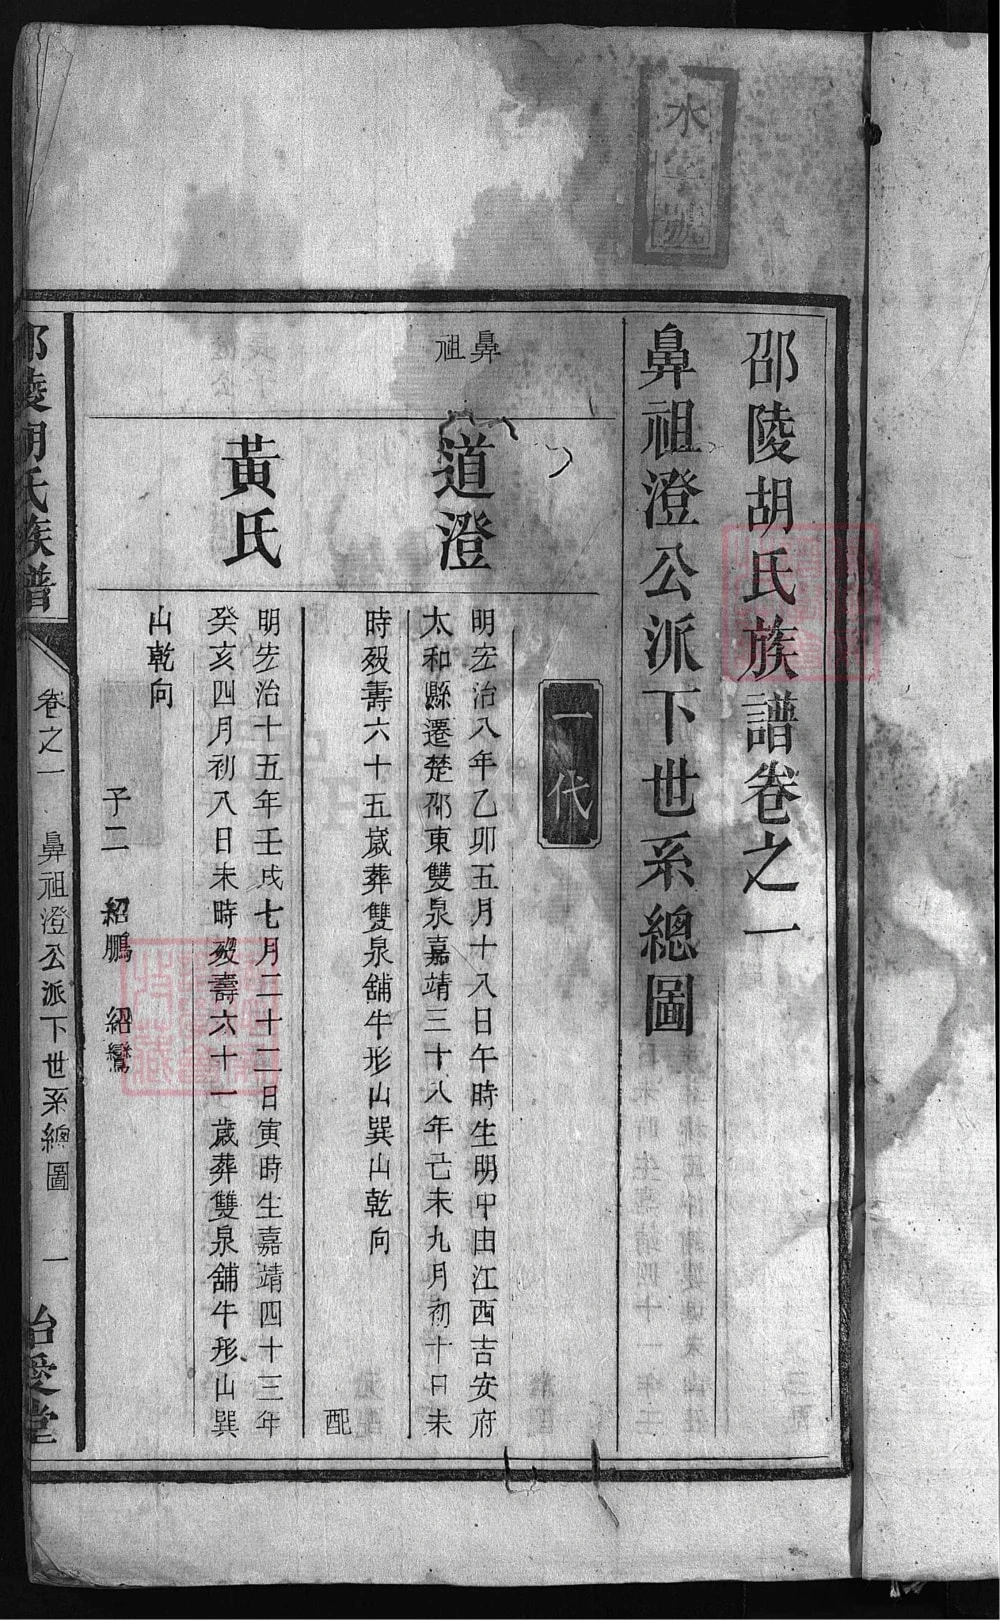 水字號
邵陵胡氏族譜卷之一
鼻祖澄公派下世系總圖
一代
鼻祖
道澄
明宏治八年乙卯五月十八日午時生明中由江西吉安府
太和縣遷楚邵東雙泉嘉靖三十八年己未九月初十日未
時殁壽六十五歲葬雙泉舖牛形山巽山乾向
配
黃氏
明宏治十五年壬戌七月二十二日寅時生嘉靖四十三年
癸亥四月初八日未時殁壽六十一歲葬雙泉舖牛形山巽
山乾向
子二 紹鵬 紹鸞
邵陵胡氏族譜
卷之一 鼻祖澄公派下世系總圖 一
怡愛堂